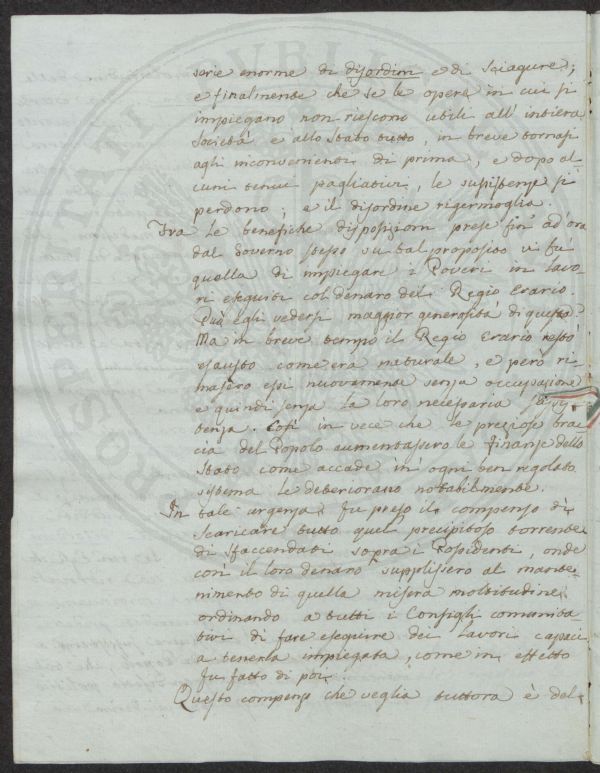 serie enorme di disordini e di sciagure;
e finalmente che se le opere in cui si
impiegano non riescono utili all' intiera
società e allo stato tutto, in breve tornasi
agli inconvenienti di prima, e dopo al
cuni tenui pagliativi, le sussistenze si
perdono, e il disordine rigermoglia.
Tra le benefiche disposizioni prese fin' ad'ora
dal Governo stesso su tal proposito vi fu
quella di impiegare i Poveri in lavo-
ri eseguiti col denaro del Regio Erario
Può egli vedersi maggior generosità di questa?
Ma in breve tempo il Regio Erario restò
esausto come era naturale, e però ri-
masero essi nuovamente senza occupazione
e quindi senza la loro necessaria sussis-
tenza. Così in vece che le preziose brac
cia del Popolo aumentassero le finanze dello
Stato come accade in ogni ben regolato
sistema le deteriorano notabilmente.
In tale urgenza fu preso il compenso di
scaricare tutto quel precipitoso torrente
di sfaccendati sopra i Possidenti, onde
con il loro denaro supplissero al mante-
nimento di quella misera moltitudine,
ordinando a tutti i Consigli comunita-
tivi di fare eseguire dei lavori capaci
a tenerla impiegata, come in effetto
fu fatto di poi.
Questo compenso che veglia tuttora è del-
PROSPERITATI PUBLIC